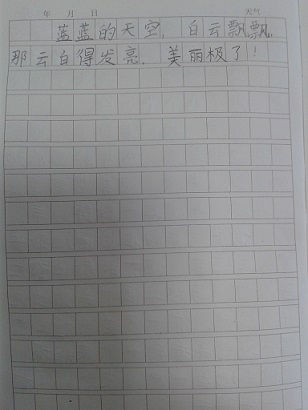 年 月 日 天气
蓝蓝的天空,白云飘飘,
那云白得发亮,美丽极了!